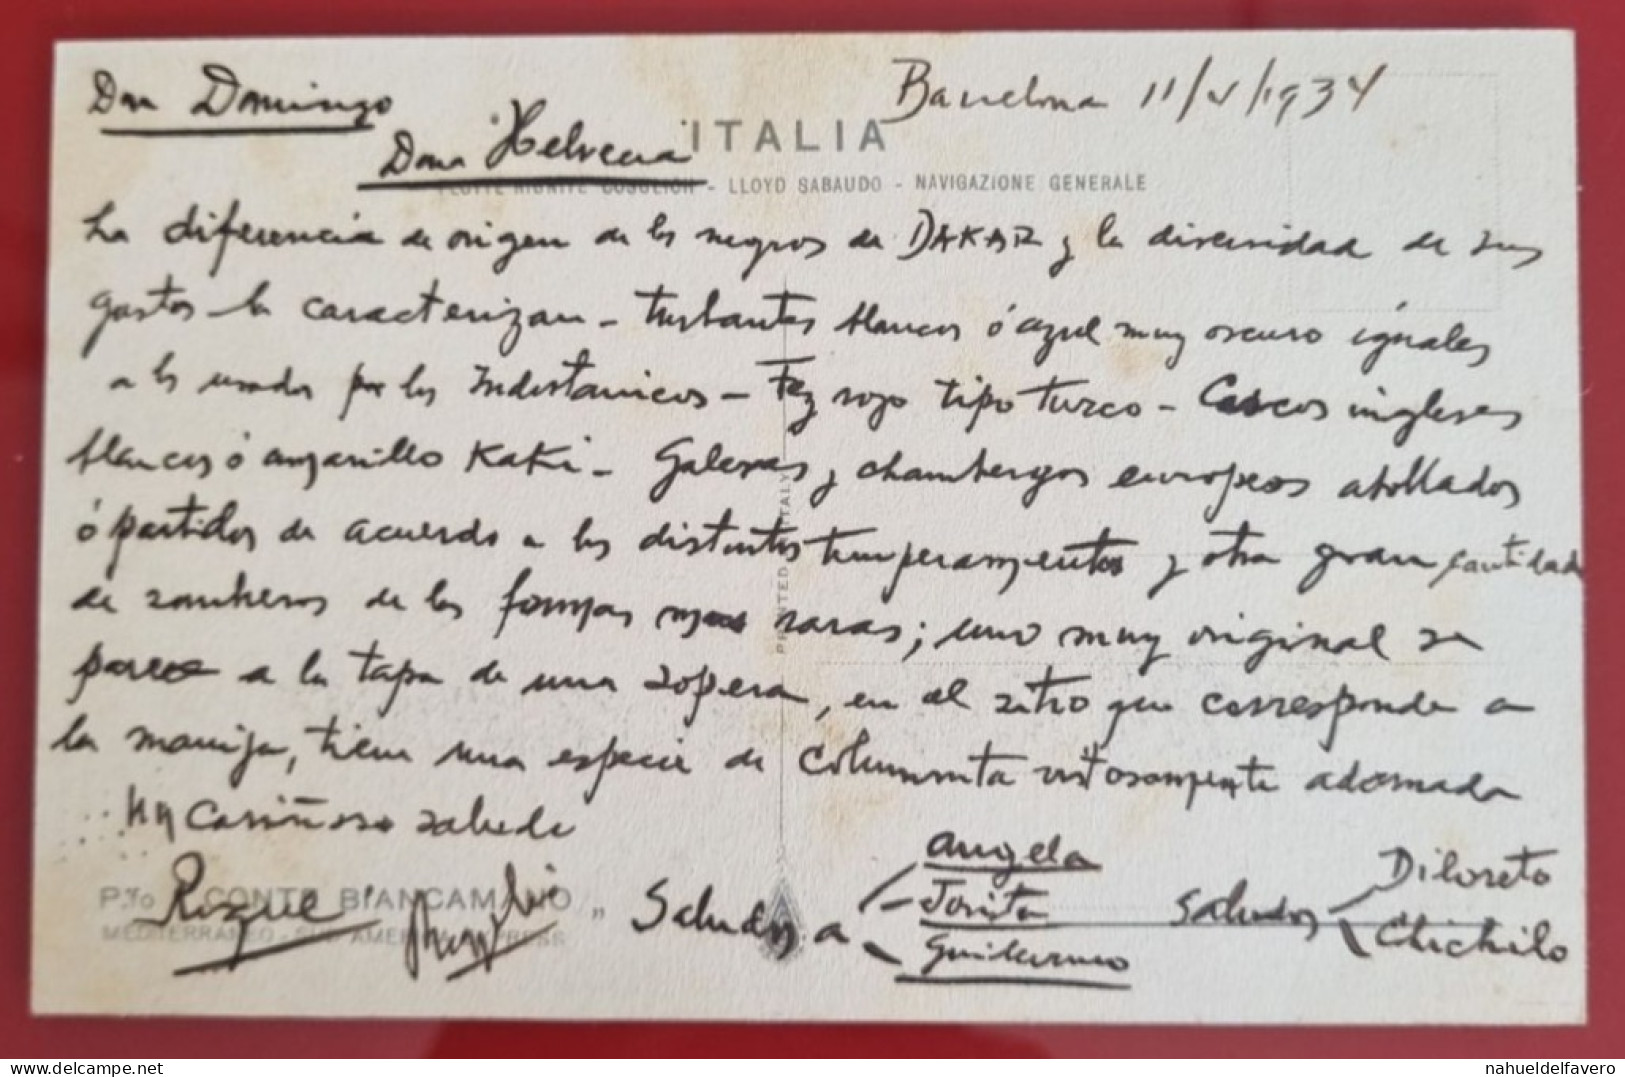 Barcelona 11/V/1934
Don Domingo
Dona Helvecia
ITALIA
FLOTTE RIUNITE COSULICH - LLOYD SABAUDO - NAVIGAZIONE GENERALE
La diferencia de origen de los negros de DAKAR y la diversidad de sus
gustos la caracterizan - Turbantes blancos ó azul muy oscuro iguales
a los usados por los Indostanicos - Fez rojo tipo turco - Cascos ingleses
blancos ó amarillo Kaki - Galeras y chambergos europeos abollados
ó partidos de acuerdo a los distintos temperamentos y otra gran cantidad
de sombreros de las formas mas raras; uno muy original se
parece a la tapa de una sopera, en el sitio que corresponde a
la manija, tiene una especie de columnita vistosamente adornada
Un cariñoso saludo
PRINTED ITALY
P.fo CONTE BIANCAMANO "
MEDITERRANEO - SUD AMERICA EXPRESS
Roque
Saludos a
Angela
Josita
Guillermo
Saludos
Diloreto
Chichilo
delcampe.net
nahueldelfavero